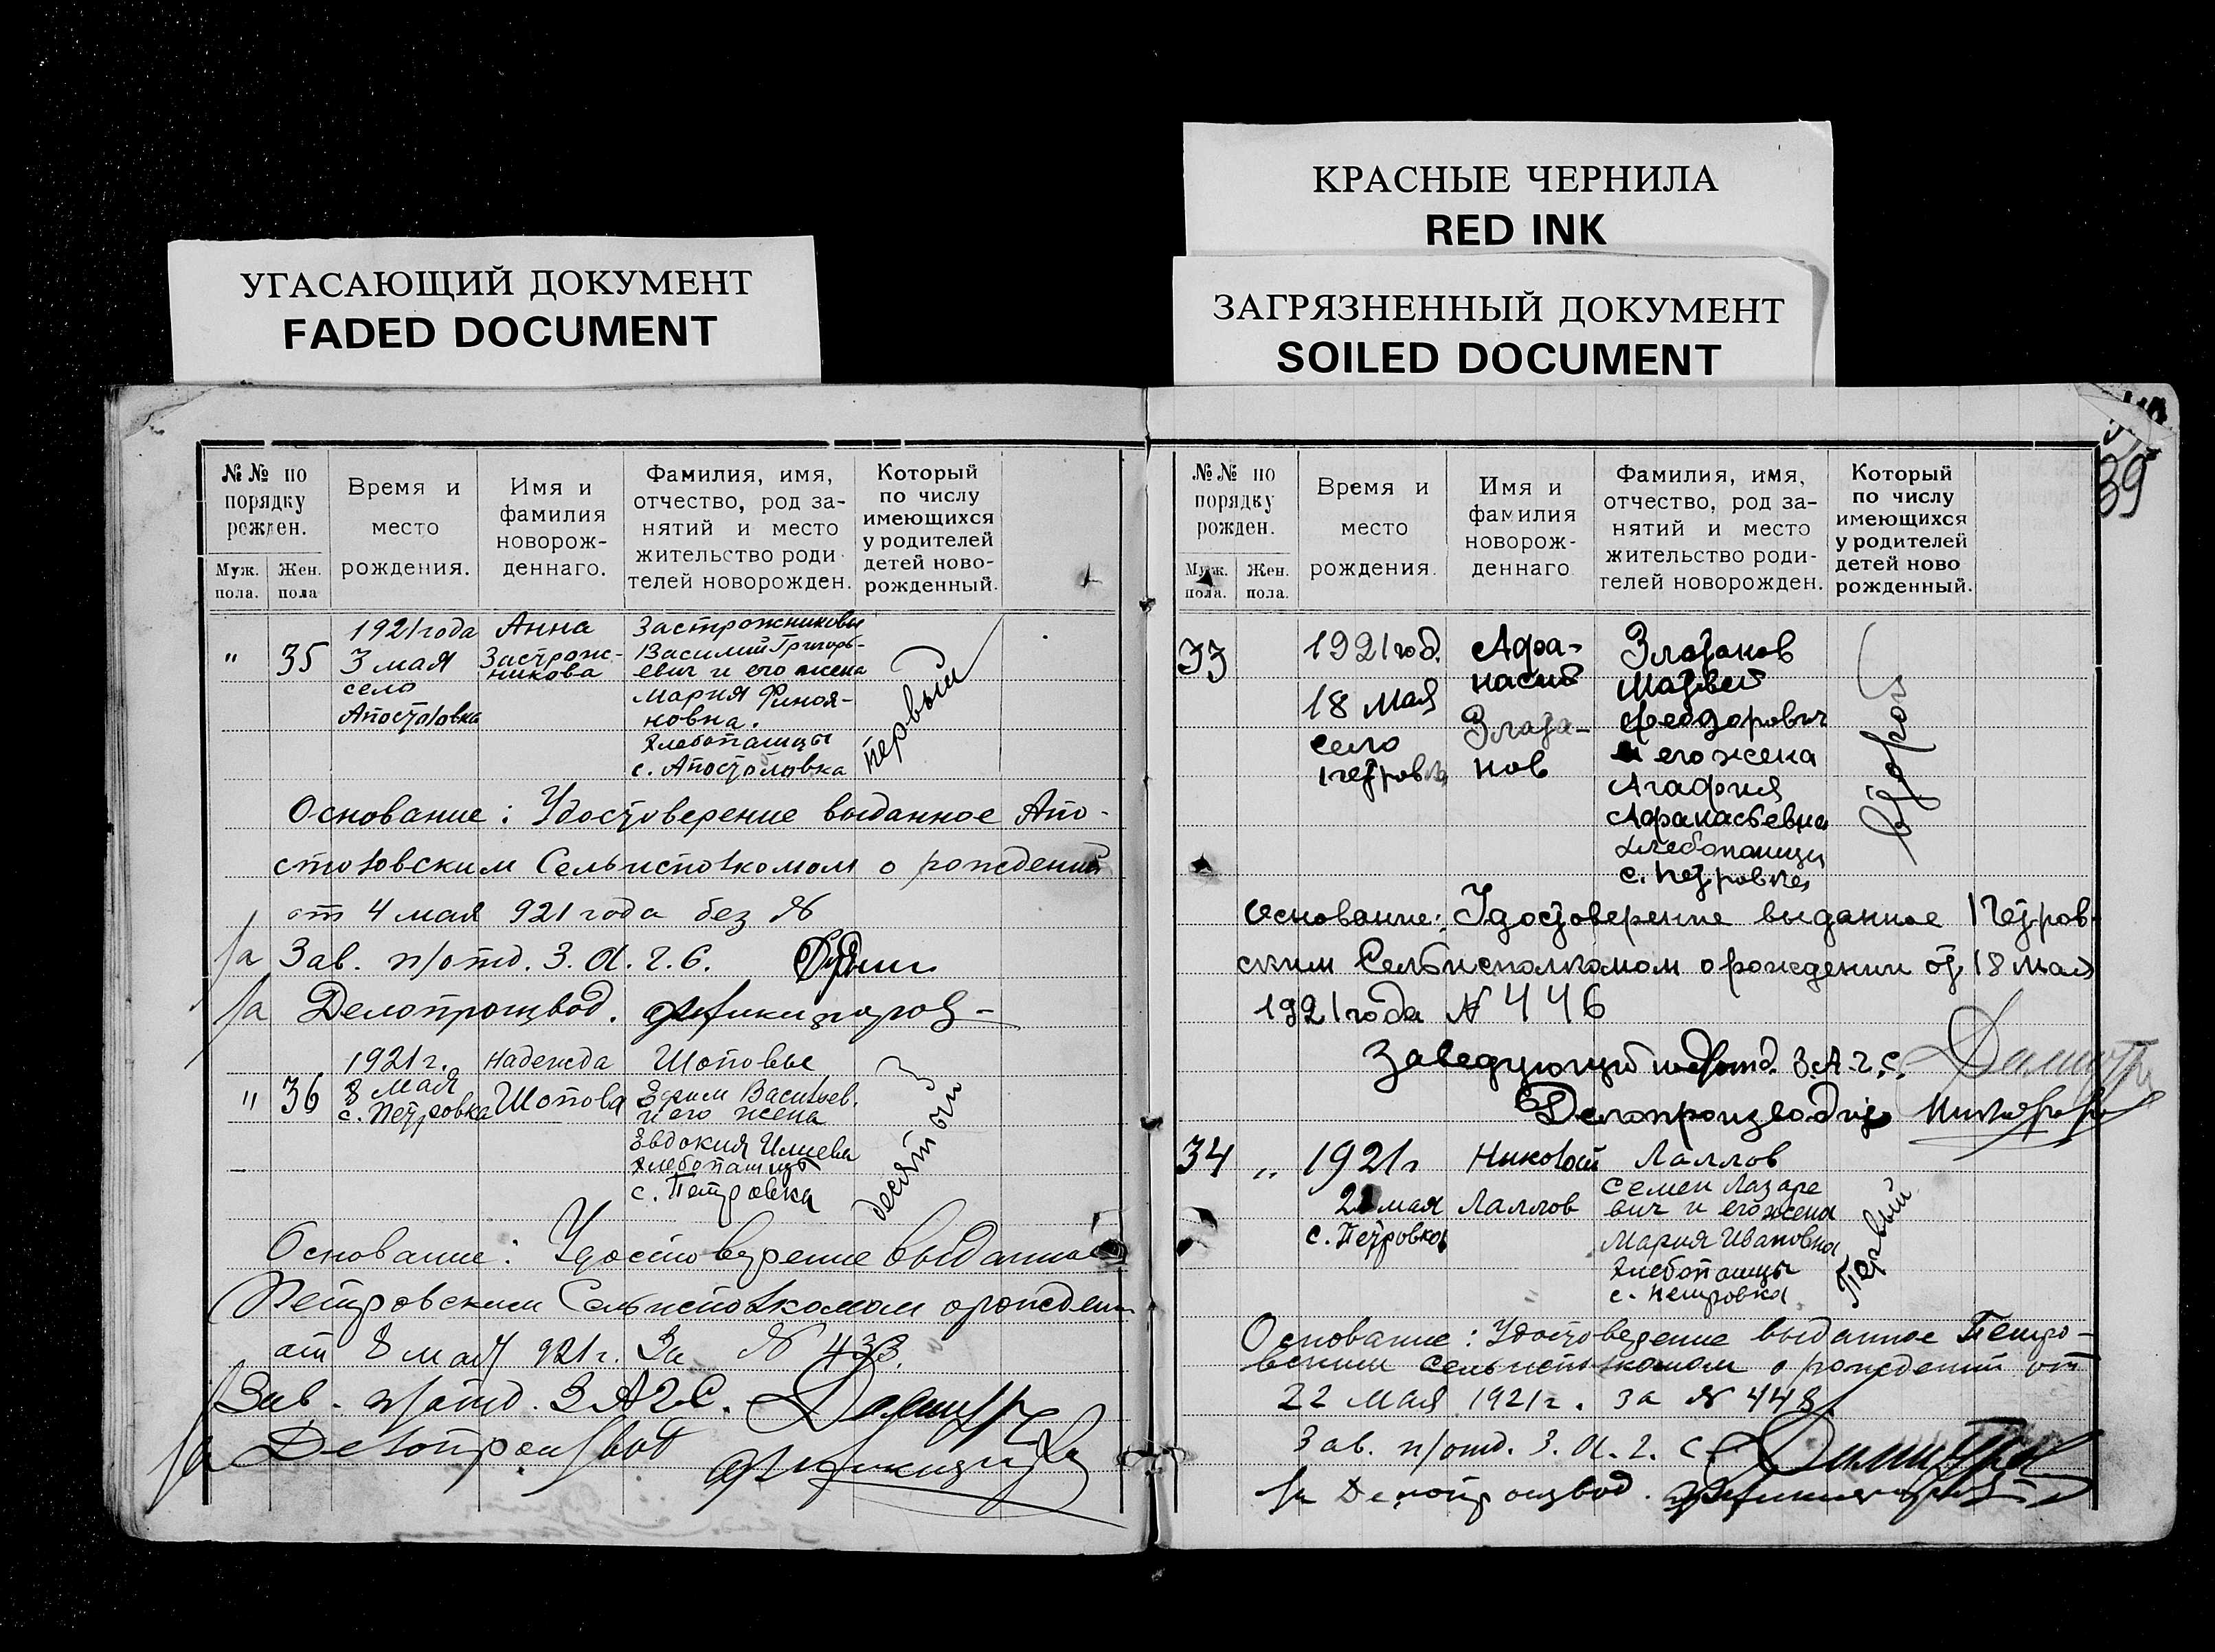 КРАСНЫЕ ЧЕРНИЛА
RED INK
УГАСАЮЩИЙ ДОКУМЕНТ
FADED DOCUMENT
ЗАГРЯЗНЕННЫЙ ДОКУМЕНТ
SOILED DOCUMENT
№№ по
порядку
рожден.
Муж.
пола.
Жен.
пола
Время и
место
рождения.
Имя и
фамилия
новорож-
деннаго.
Фамилия, имя,
отчество, род за-
нятий и место
жительство роди-
телей новорожден.
Который
по числу
имеющихся
у родителей
детей ново-
рожденный.
"
35
1921 года
3 мая
село
Апостоловка
Анна
Застрож-
никова
Застрожниковы
Василий Григорь-
евич и его жена
Мария
новна.
хлебопашцы
с. Апостоловка
первый
Основание: Удостоверение выданное Апо-
столовским Сельисполкомом о рождении
от 4 мая 921 года без №
За Зав. п/отд. З. А. Г. С.
За Делопроизвод.
"
36
1921 г.
8 мая
с. Петровка
Надежда
Шопова
Шоповы
Ефим Васильев.
и его жена
Евдокия Илиева
хлебопашцы
с. Петровка
десятый
Основание: Удостоверение выданное
Петровским Сельисполкомом о рожден
от 8 мая 921 г. За № 433.
Зав. п/отд. ЗАГС.
За Делопроизвод
39
№№ по
порядку
рожден.
Муж.
пола.
Жен.
пола.
Время и
место
рождения.
Имя и
фамилия
новорож-
деннаго
Фамилия, имя,
отчество, род за-
нятий и место
жительство роди-
телей новорожден.
Который
по числу
имеющихся
у родителей
детей ново
рожденный.
33
1921 год.
18 мая
село
Петровка
Афа-
насий
Злата-
нов
Златанов
Матвей
Феодорович
и его жена
Агафия
Афанасьевна
хлебопашцы
с. Петровка
второй
Основание: Удостоверение выданное Петров-
ским Сельисполкомом о рождении от 18 мая
1921 года № 446
Заведующий подотд. З.А.Г.С.
Делопроизводит
34
"
1921 г
22 мая
с. Петровка
Николай
Лаллов
Лаллов
Семен Лазаре
вич и его жена
Мария Ивановна
хлебопашцы
с. Петровка
Первый
Основание: Удостоверение выданное Петро-
вским сельисполкомом о рождений от
22 мая 1921 г. за № 448.
Зав. п/отд. З. А. Г. С.
За Делопроизвод.